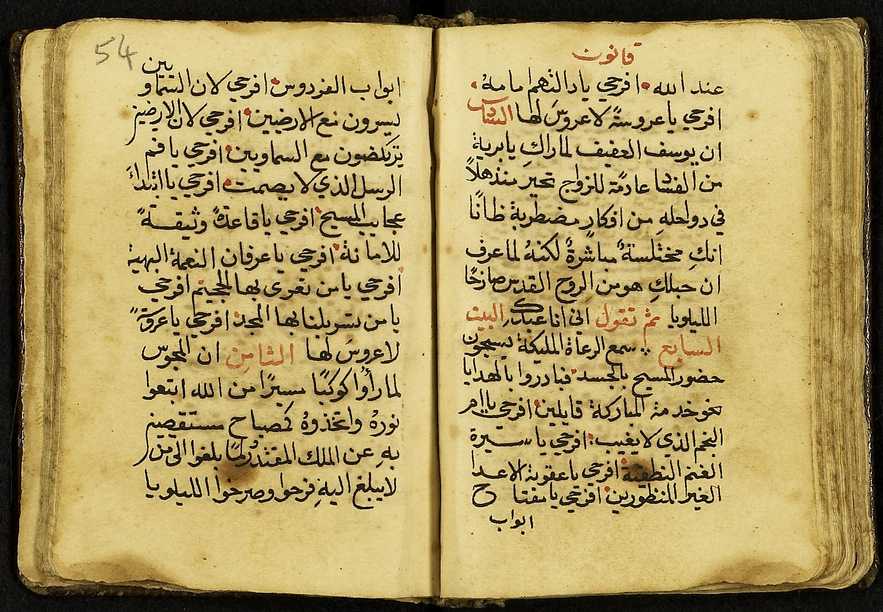 قانون
عند الله افرحي يا دالتهم امامه
افرحي يا عروسةً لا عروسَ لها السادس
ان يوسف العفيف لما راكِ يا برية
من الفساد عادمةً للزواج تحير منذهلاً
في دواخله من افكارٍ مضطربة ظانًا
انكِ مختلسةً مباشرةً لكنهُ لما عرف
ان حبلكِ هو من الروح القدس صارخًا
الليلويا ثم تقول الى انا عبدك البيت
السابع سمع الرعاة المليكة يسبحون
حضور المسيح بالجسد فبادروا بالهدايا
نحو خدمة المباركة قايلين افرحي يا ام
النجم الذي لا يغيب افرحي يا سيرة
الغنم النطقية افرحي يا عقوبة الاعدا
الغير المنظورين افرحي يا مفتاح
ابواب
54
ابواب الفردوس افرحي لان السماويين
يسرون مع الارضيين افرحي لان الارضيين
يرتكضون مع السماويين افرحي يا فم
الرسل الذي لا يصمت افرحي يا ابتداءَ
عجايب المسيح افرحي يا قاعدةً وثيقةً
للامانة افرحي يا عرفان النعمة البهية
افرحي يا من تعرى بها الجحيم افرحي
يا من تسربلنا بها المجد افرحي يا عروسةً
لا عروسَ لها الثامن ان المجوس
لما رأوا كوكبًا مسيرًا من الله ابتعوا
نورهُ واتخذوهُ كمصباحٍ مستقصيين
بهِ عن الملك المقتدر ولما بلغوا الى من
لا يبلغ اليهِ فرحوا وصرخوا الليلويا